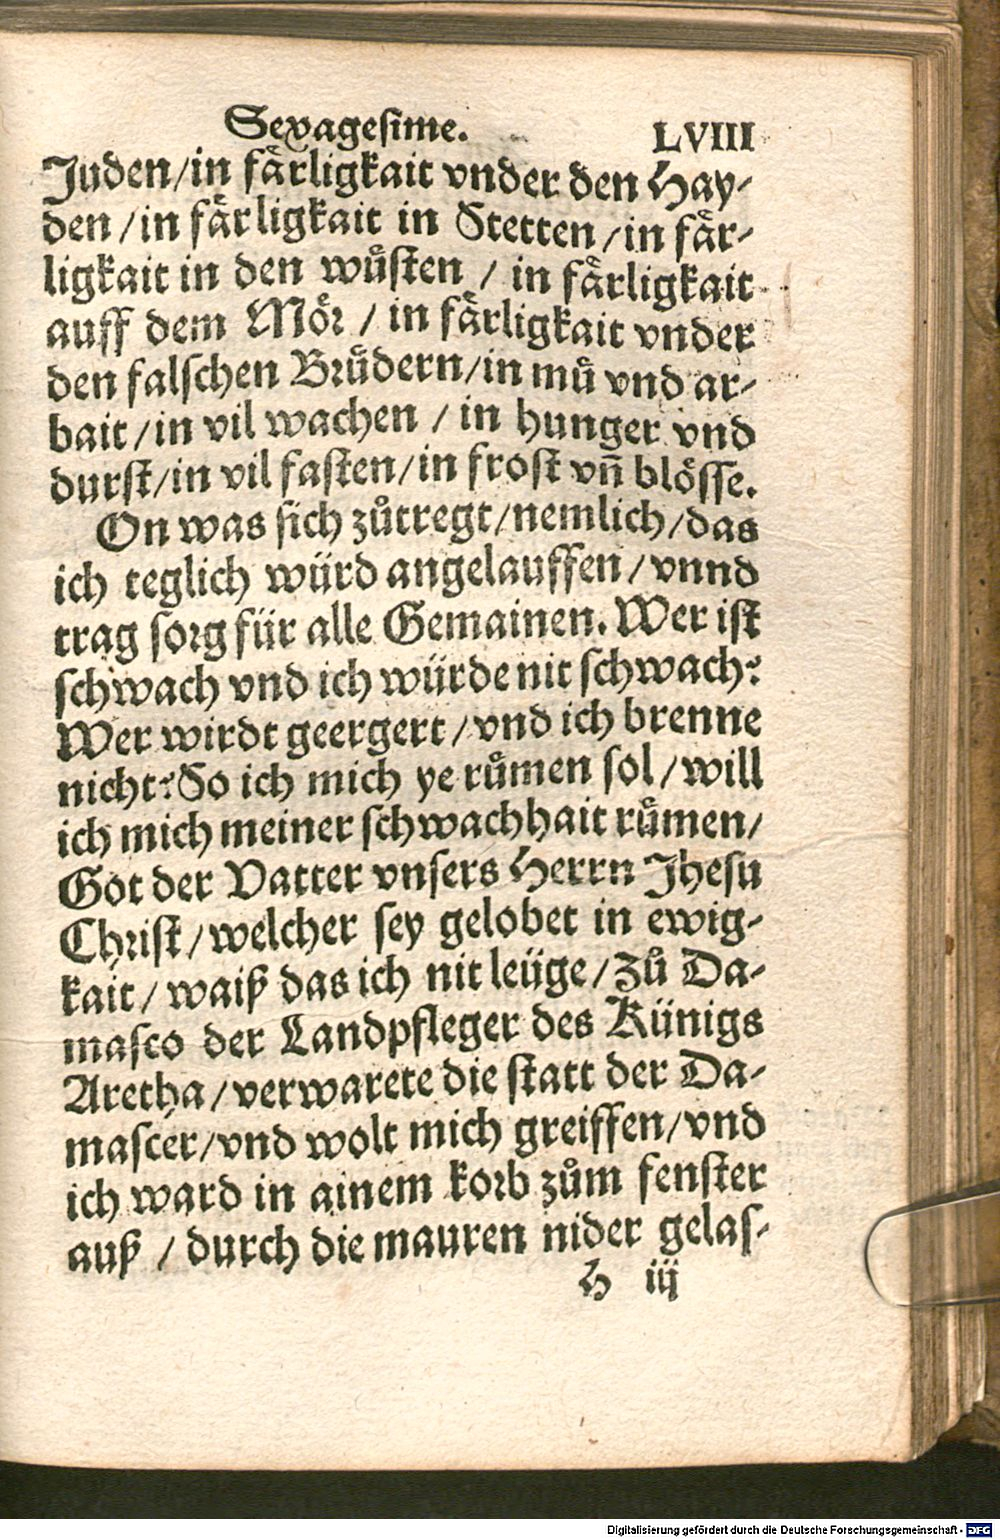 Sexagesime. LVIII
Juden/in faͤrligkait vnder den Hay-
den/in faͤrligkait in Stetten/in faͤr-
ligkait in den wuͤsten / in faͤrligkait
auff dem Moͤr / in faͤrligkait vnder
den falschen Bruͤdern/in muͤ vnd ar-
bait/in vil wachen / in hunger vnd
durst/in vil fasten/in frost vñ bloͤsse.
On was sich zuͦtregt/nemlich/das
ich teglich würd angelauffen/vnnd
trag sorg für alle Gemainen. Wer ist
schwach vnd ich würde nit schwach?
Wer wirdt geergert/vnd ich brenne
nicht? So ich mich ye ruͤmen sol/will
ich mich meiner schwachhait ruͤmen/
Got der Vatter vnsers Herrn Jhesu
Christ/welcher sey gelobet in ewig-
kait/waiß das ich nit leüge/Zuͦ Da-
masco der Landpfleger des Künigs
Aretha/verwarete die statt der Da-
mascer/vnd wolt mich greiffen/vnd
ich ward in ainem korb zuͦm fenster
auß / durch die mauren nider gelas-
H iij
Digitalisierung gefördert durch die Deutsche Forschungsgemeinschaft - DFG